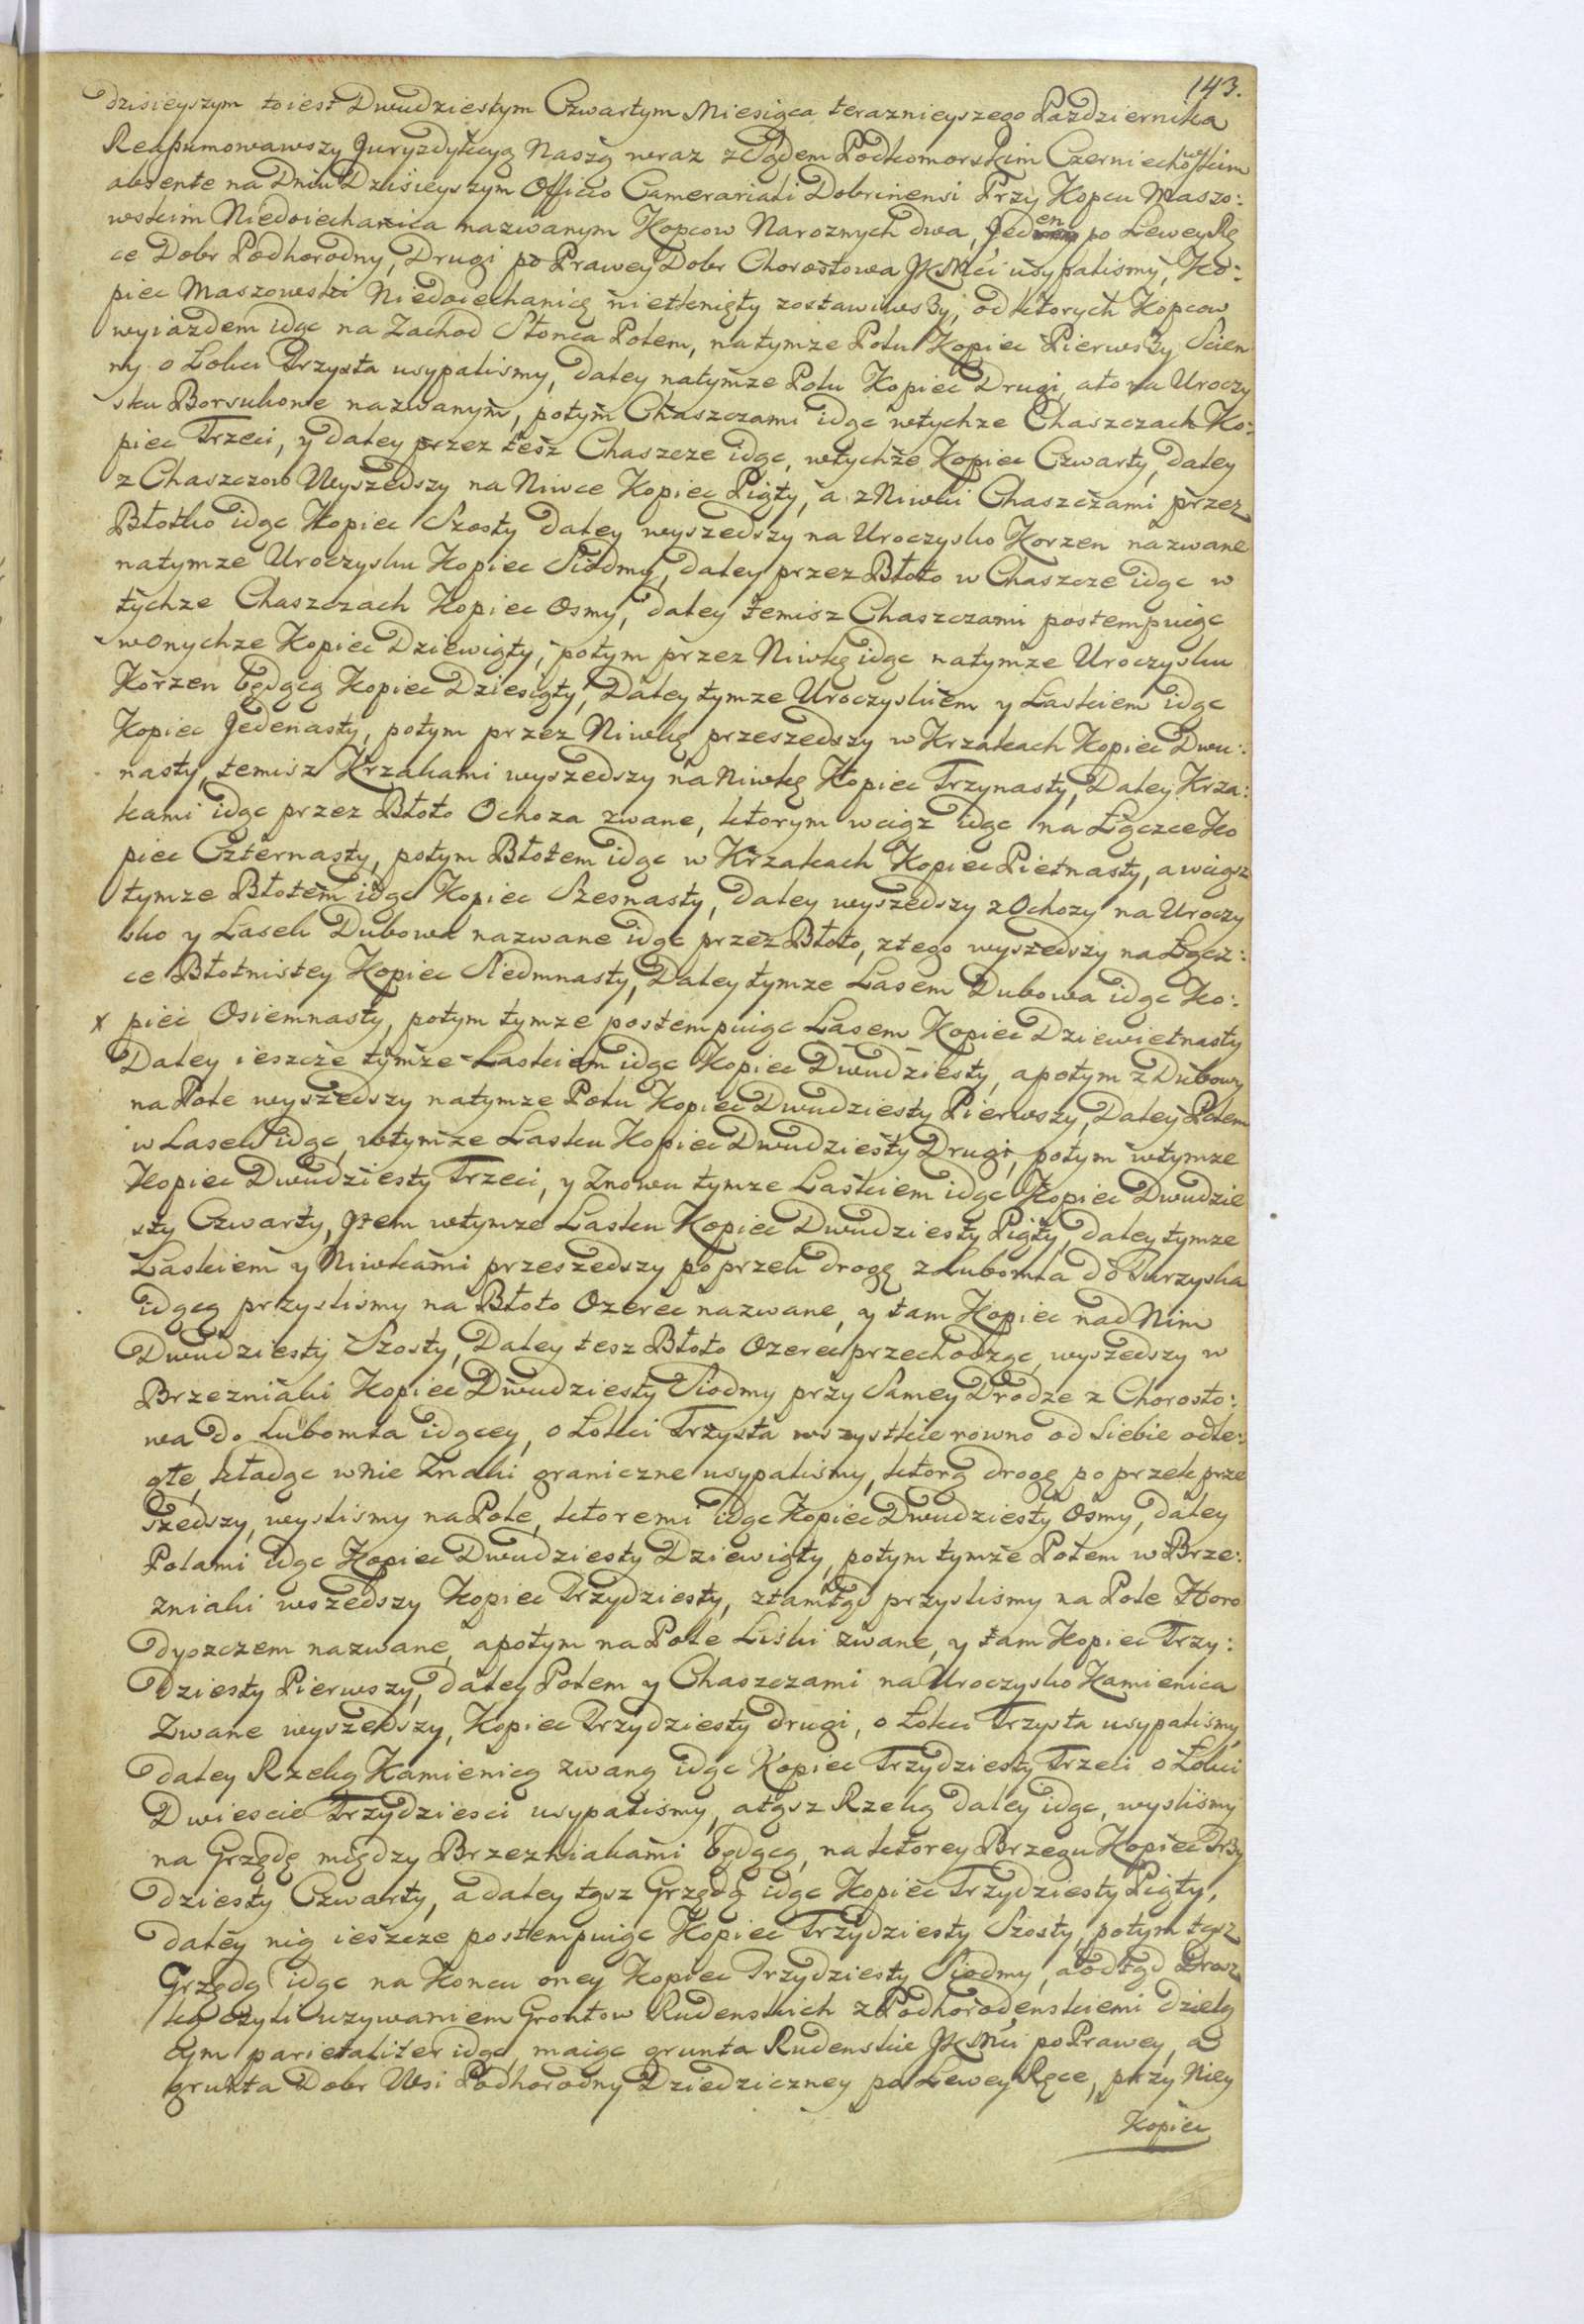 143.
dzisieyszym toiest Dwudziestym Czwartym Miesiąca teraznieyszego Pazdziernika
Reassumowawszy Juryzdykcyą Naszą wraz z Sądem Podkomorskim Czerniechowskim
absente na Dniu Dzisieyszym Officio Camerariali Dobrinensi Przy Kopcu Maszo:
wskim Niedoiechanica nazwanym Kopcow Naroznych dwa, Jeden po Lewey Rę
ce Dobr Podhorodny, Drugi po Prawey Dobr Chorostowa JKMci usypalismy, Ko:
piec Maszowski Niedoiechanicę nietknięty zostawiwszy, od ktorych Kopcow
wyiazdem idąc na Zachod Słonca Polem, natymze Polu Kopiec Pierwszy Scien
ny o Lokci Trzysta usypalismy, daley natymze Polu Kopiec Drugi, ato na Uroczy
sku Borsukowe nazwanym, potym Chaszczami idąc wtychze Chaszczach Ko:
piec Trzeci, y daley przez tesz Chaszcze idąc, wtychze Kopiec Czwarty, daley
z Chaszczow Wyszedszy na Niwce Kopiec Piąty, a z Niwki Chaszczami przez
Błotko idąc Kopiec Szosty daley wyszedszy na Uroczysko Korzen nazwane
natymze Uroczysku Kopiec Siodmy, daley przez Błoto w Chaszcze idąc w
tychze Chaszczach Kopiec Osmy, daley temisz Chaszczami postempuiąc
wonychze Kopiec Dziewiąty, potym przez Niwkę idąc natymze Uroczysku
Korzen będącą Kopiec Dziesiąty, Daley tymze Uroczyskiem y Laskiem idąc
Kopiec Jedenasty, potym przez Niwkę przeszedszy w Krzakach Kopiec Dwu:
nasty, temisz Krzakami wyszedszy na Niwkę Kopiec Trzynasty, Daley Krza:
kami idąc przez Błoto Ochoza zwane, ktorym wciąz idąc na Łączce Ko
piec Czternasty, potym Błotem idąc w Krzakach Kopiec Pietnasty, a wciąsz
tymze Błotem idąc Kopiec Szesnasty, daley wyszedszy z Ochozy na Uroczy
sko y Lasek Dubowa nazwane idąc przez Błoto, ztego wyszedszy na Łącz:
ce Błotnistey Kopiec Siedmnasty, Daley tymze Lasem Dubowa idąc Ko:
x piec Osiemnasty, potym tymze postempuiąc Lasem Kopiec Dziewietnasty
Daley ieszcze tymze Laskiem idąc Kopiec Dwudziesty, apotym z Dubowy
na Pole wyszedszy natymze Polu Kopiec Dwudziesty Pierwszy, Daley Polem
w Lasek idąc, wtymze Lasku Kopiec Dwudziesty Drugi, potym wtymze
Kopiec Dwudziesty Trzeci, y Znowu tymze Laskiem idąc Kopiec Dwudzie
sty Czwarty, Item wtymze Lasku Kopiec Dwudziesty Piąty, daley tymze
Laskiem y Niwkami przeszedszy poprzek drogę z Lubomla do Turzyska
idącą przyslismy na Błoto Ozerec nazwane, y tam Kopiec nad Nim
Dwudziesty Szosty, Daley tesz Błoto Ozerec przechodząc, wyszedszy w
Brzezniaki Kopiec Dwudziesty Siodmy przy Samey Drodze z Chorosto:
wa do Lubomla idącey, o Lokci Trzysta wszystkie rowno od Siebie odle:
głe, kładąc wnie Znaki graniczne usypalismy, ktorą drogę poprzek prze
szedszy, wyslismy na Pole, ktoremi idąc Kopiec Dwudziesty Osmy, daley
Polami idąc Kopiec Dwudziesty Dziewiąty, potym tymze Polem w Brze:
zniaki wszedszy Kopiec Trzydziesty, ztamtąd przyslismy na Pole Horo
dyszczem nazwane, apotym na Pole Liski zwane, y tam Kopiec Trzy:
dziesty Pierwszy, daley Polem y Chaszczami na Uroczysko Kamienica
Zwane wyszedszy, Kopiec Trzydziesty drugi, o Lokci Trzysta usypalismy,
daley Rzeką Kamienicą zwaną idąc Kopiec Trzydziesty Trzeci o Lokci
Dwiescie Trzydziesci usypalismy, atąsz Rzeką daley idąc, wyslismy
na Grzędę między Brzezniakami będącą, na ktorey Brzegu Kopiec Trzy
dziesty Czwarty, a daley tąsz Grzędą idąc Kopiec Trzydziesty Piąty,
daley nią ieszcze postempuiąc Kopiec Trzydziesty Szosty, potym tąsz
Grzędą idąc na Koncu oney Kopiec Trzydziesty Siodmy, a odtąd Drosz
ką czyli uzywaniem Grontow Rudenskich z Podhorodenskiemi dzielą
cym parietaliter idąc, maiąc grunta Rudenskie JKMci po Prawey, a
grunta Dobr Wsi Podhorodny Dziedziczney po Lewey Ręce, przy Niey
Kopiec